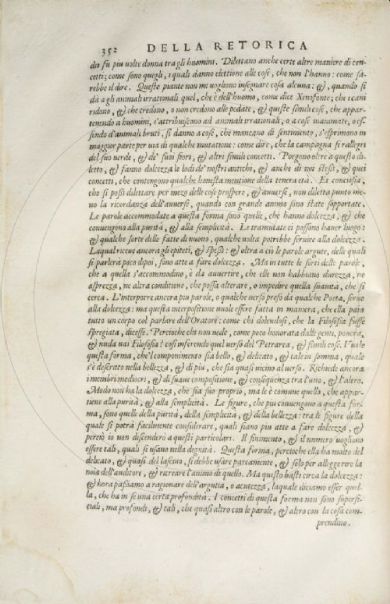 352 DELLA RETORICA
do fu piu volte donna tra gli huomini. Dilettano anche certe altre maniere di con-
cetti; come sono quegli, i quali danno elettione alle cose, che non l'hanno: come sa-
rebbe il dire. Queste piante non mi vogliono insegnare cosa alcuna: &, quando si
dà a gli animali irrationali quel, che è dell'huomo, come dice Xenofonte; che i cani
ridono, & che credono, o non credono alle pedate, & queste simili cose, che appar-
tenendo a huomini, s'attribuiscono ad animali irrationali, o a cose inanimate, o es-
sendo d'animali bruti, si danno a cose, che mancano di sentimento, s'esprimono in
maggior parte per via di qualche mutatione: come dire, che la campagna si rallegri
del suo verde, & de' suoi fiori, & altre simili concetti. Porgono oltre a questo di-
letto, & fanno dolcezza le lodi de' nostri antichi, & anche di noi stessi, & quei
concetti, che contengono qualche honesta mentione della tenera età. Et conciosia,
che si possi dilettare per mezo delle cose prospere, & avverse, non diletta punto me-
no la ricordanza dell'avverse, quando con grande animo sono state sopportate.
Le parole accommodate a questa forma sono quelle, che hanno dolcezza, & che
convengono alla purità, & alla simplicità. Le tramutate ci possano haver luogo:
& qualche sorte delle fatte di nuovo, qualche volta potrebbe servire alla dolcezza.
La qual riceve ancora gli epiteti, & spessi: & oltra a ciò le parole argute, delle quali
si parlerà poco dipoi, sono atte a fare dolcezza. Ma in tutte le sorti delle parole,
che a quella s'accommodino, è da avvertire, che elle non habbiano durezza, ne
asprezza, ne altra conditione, che possa alterare, o impedire quella suavità, che si
cerca. L'interporre ancora piu parole, o qualche verso preso da qualche Poeta, serve
alla dolcezza: ma questa interpositione vuole essere fatta in maniera, che ella paia
tutto un corpo col parlare dell'Oratore: come chi dolendosi, che la Filosofia fusse
spregiata, dicesse. Percioche che non vale, come poco honorata dalla gente, povera,
& nuda vai Filosofia? così inserendo quel verso del Petrarca, & simili cose. Vuole
questa forma, che l'componimento sia bello, & delicato, & tale in somma, quale
s'è descritto nella bellezza, & di piu, che sia quasi vicino al verso. Richiede ancora
i membri mediocri, & di suave compositione, & conseguenza tra l'uno, & l'altro.
Modo non ha la dolcezza, che sia suo proprio, ma le è comune quello, che appar-
tiene alla purità, & alla simplicità. Le figure, che piu convengono a questa for-
ma, sono quelle della purità, della simplicità, & della bellezza: tra le figure della
quale si potrà facilmente considerare, quali siano piu atte a fare dolcezza, &
perciò io non discenderò a questi particolari. Il finimento, & il numero vogliono
essere tali, quali si usano nella dignità. Questa forma, percioche ella ha molto del
delicato, & quasi del lascivo, si debbe usare parcamente, & solo per alleggerire la
noia dell'auditore, & ricreare l'animo di quello. Ma questo basti circa la dolcezza:
& hora passiamo a ragionare dell'argutia, o acutezza, laquale diciamo esser quel-
la, che ha in se una certa profondità. I concetti di questa forma non sono superfi-
ciali, ma profondi, & tali, che quasi altro con le parole, & altro con la cosa com-
prendino.